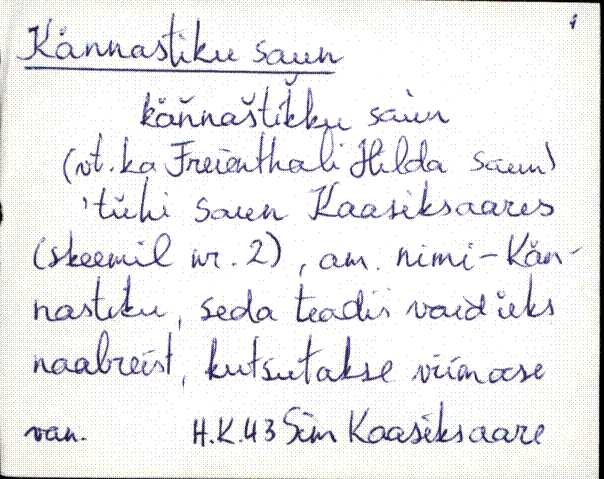 1
Kännastiku saun
käňnaštĭkku sàun
(vt. ka Freienthali Hilda saun)
'tühi saun Kaasiksaares
(skeemil nr. 2), am. nimi - Kän-
nastiku, seda teadis vaid üks
naabreist, kutsutakse viimase
van. H.K.43 Sim Kaasiksaare